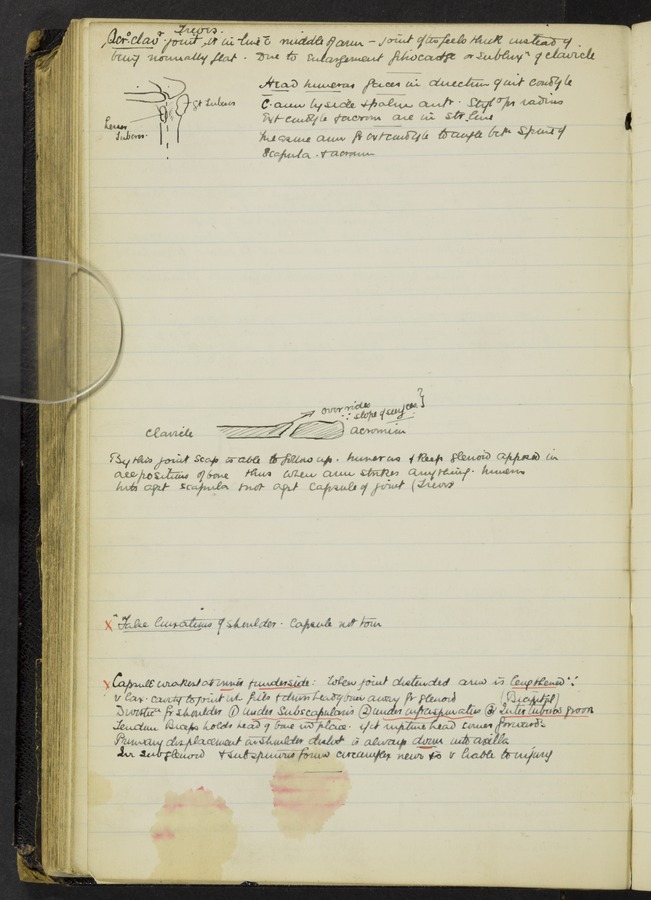 Treves.
Acr: clav: joint, is in line c̄ middle of arm – joint often feels thick instead of
being normally flat. Due to enlargement fibrocartge or sublxn of clavicle
Head humerus faces in direction of int condyle
c̄ arm by side & palm antr. Styl: pr radius
Ext condyle & acrom are in str. line
Measure arm fr ext condyle to angle betn Spine of
Scapula & acromn
Gt Tuberos
Lesser
Tuberos.
over rides
∵ slope of surfces?
clavicle
acromion
By this joint Scap is able to follow up humerus & keep glenoid apposed in
all positions of bone thus when arm strikes anything humerus
hits agst scapula & not agst capsule of joint (Treves
X "False luxations of shoulder. Capsule not torn
X Capsule weakest at inner & underside: When joint distended arm is lengthened ∵
v lax. cavity to joint wh fills & draws head of bone away fr glenoid
(Bicipital)
Divertic fr shoulder ① under Subscapularis ② under infraspinatus ③ Intertuberous groove
Tendon Biceps holds head of bone in place: if it rupture head comes forward:
Primary displacement in shoulder disloct is always down into axilla
In subglenoid & subspinous forms circumflex nerve is v liable to injury